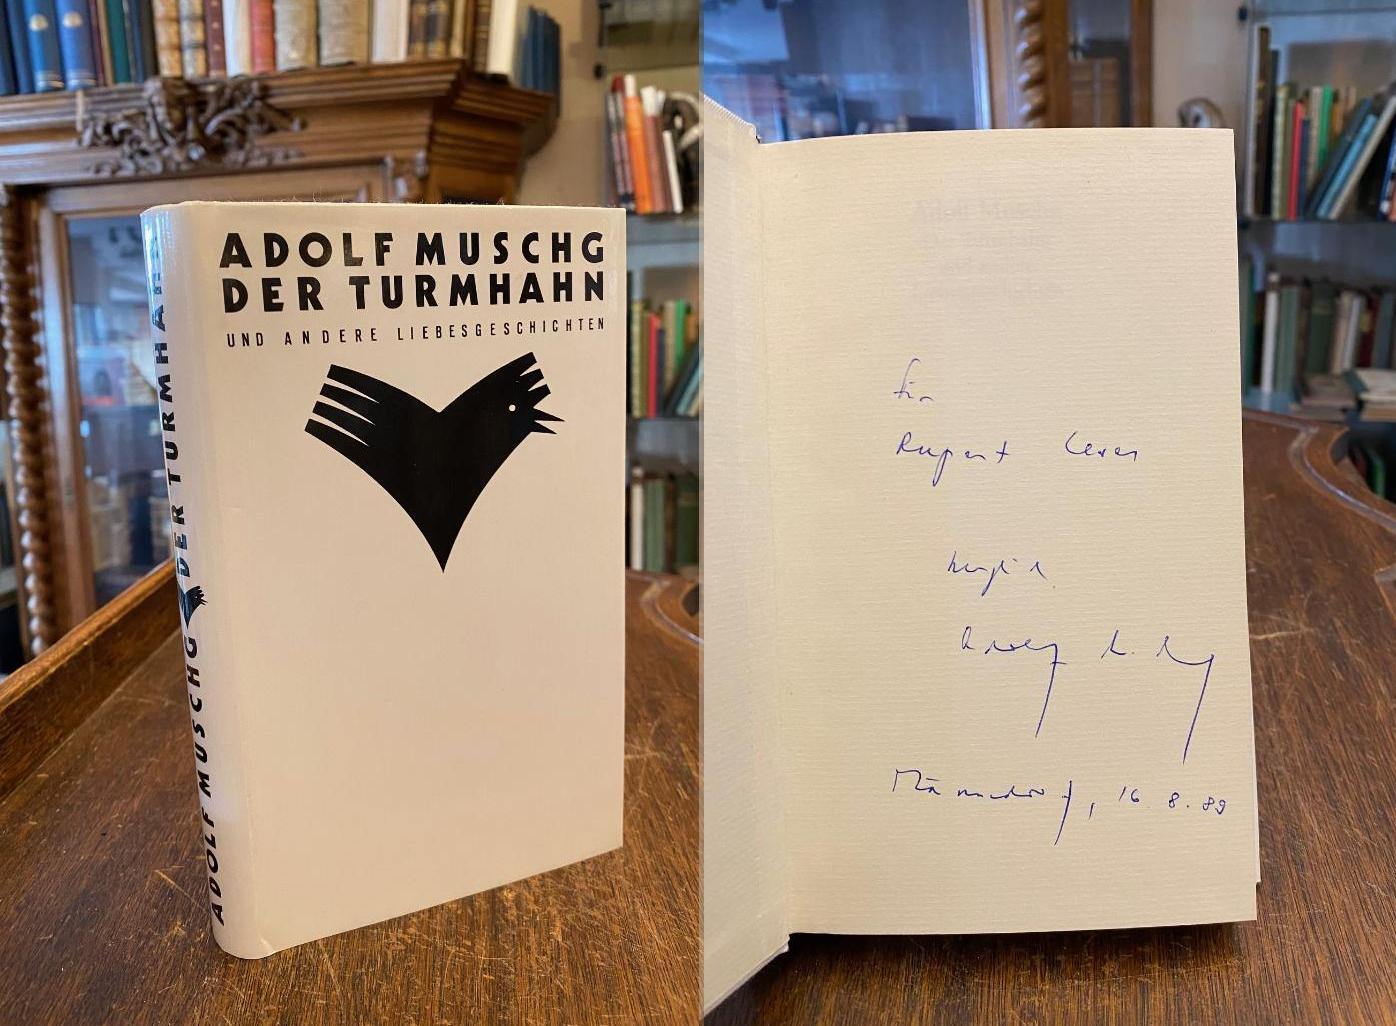 ADOLF MUSCHG
DER TURMHAHN
UND ANDERE LIEBESGESCHICHTEN
ADOLF MUSCHG DER TURMHAHN
für
Rupert
herzlich
Adolf Muschg
Männedorf, 16. 8. 89